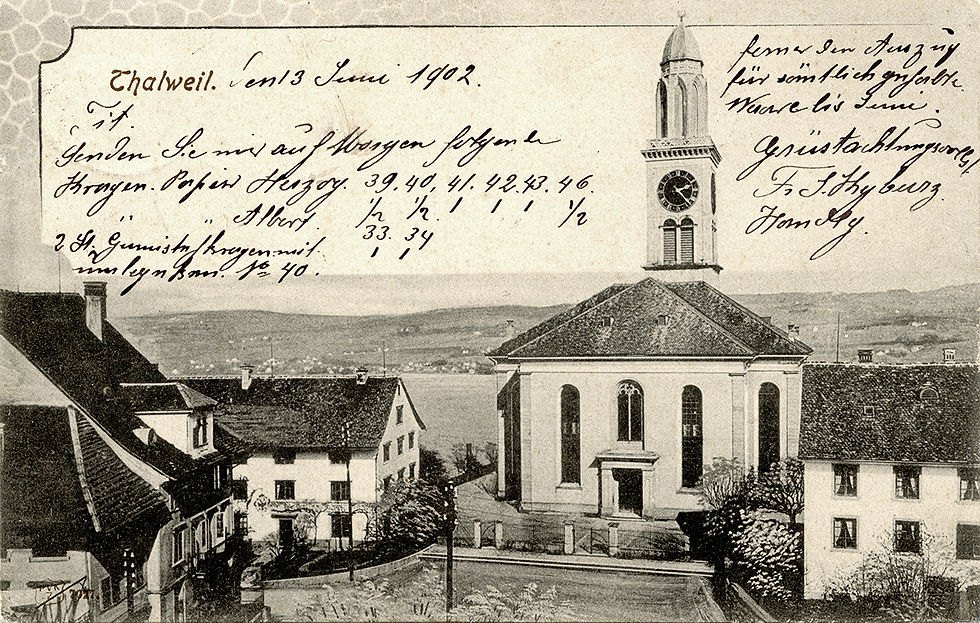 Thalweil. den 13 Juni 1902.
Tit.
Senden Sie mir auf Morgen folgende
Kragen. Papier Herzog. 39. 40. 41. 42. 43. 46.
½ ½ 1 1 1 ½
" " Albert. 33. 34
1 1
2 St. Gumistoffkragen mit
No 40.
ferner den Auszug
für sämtlich gehabte
Waare bis Juni.
Grüst achtungsvoll
Fr. S. Kyburz
Handlg.